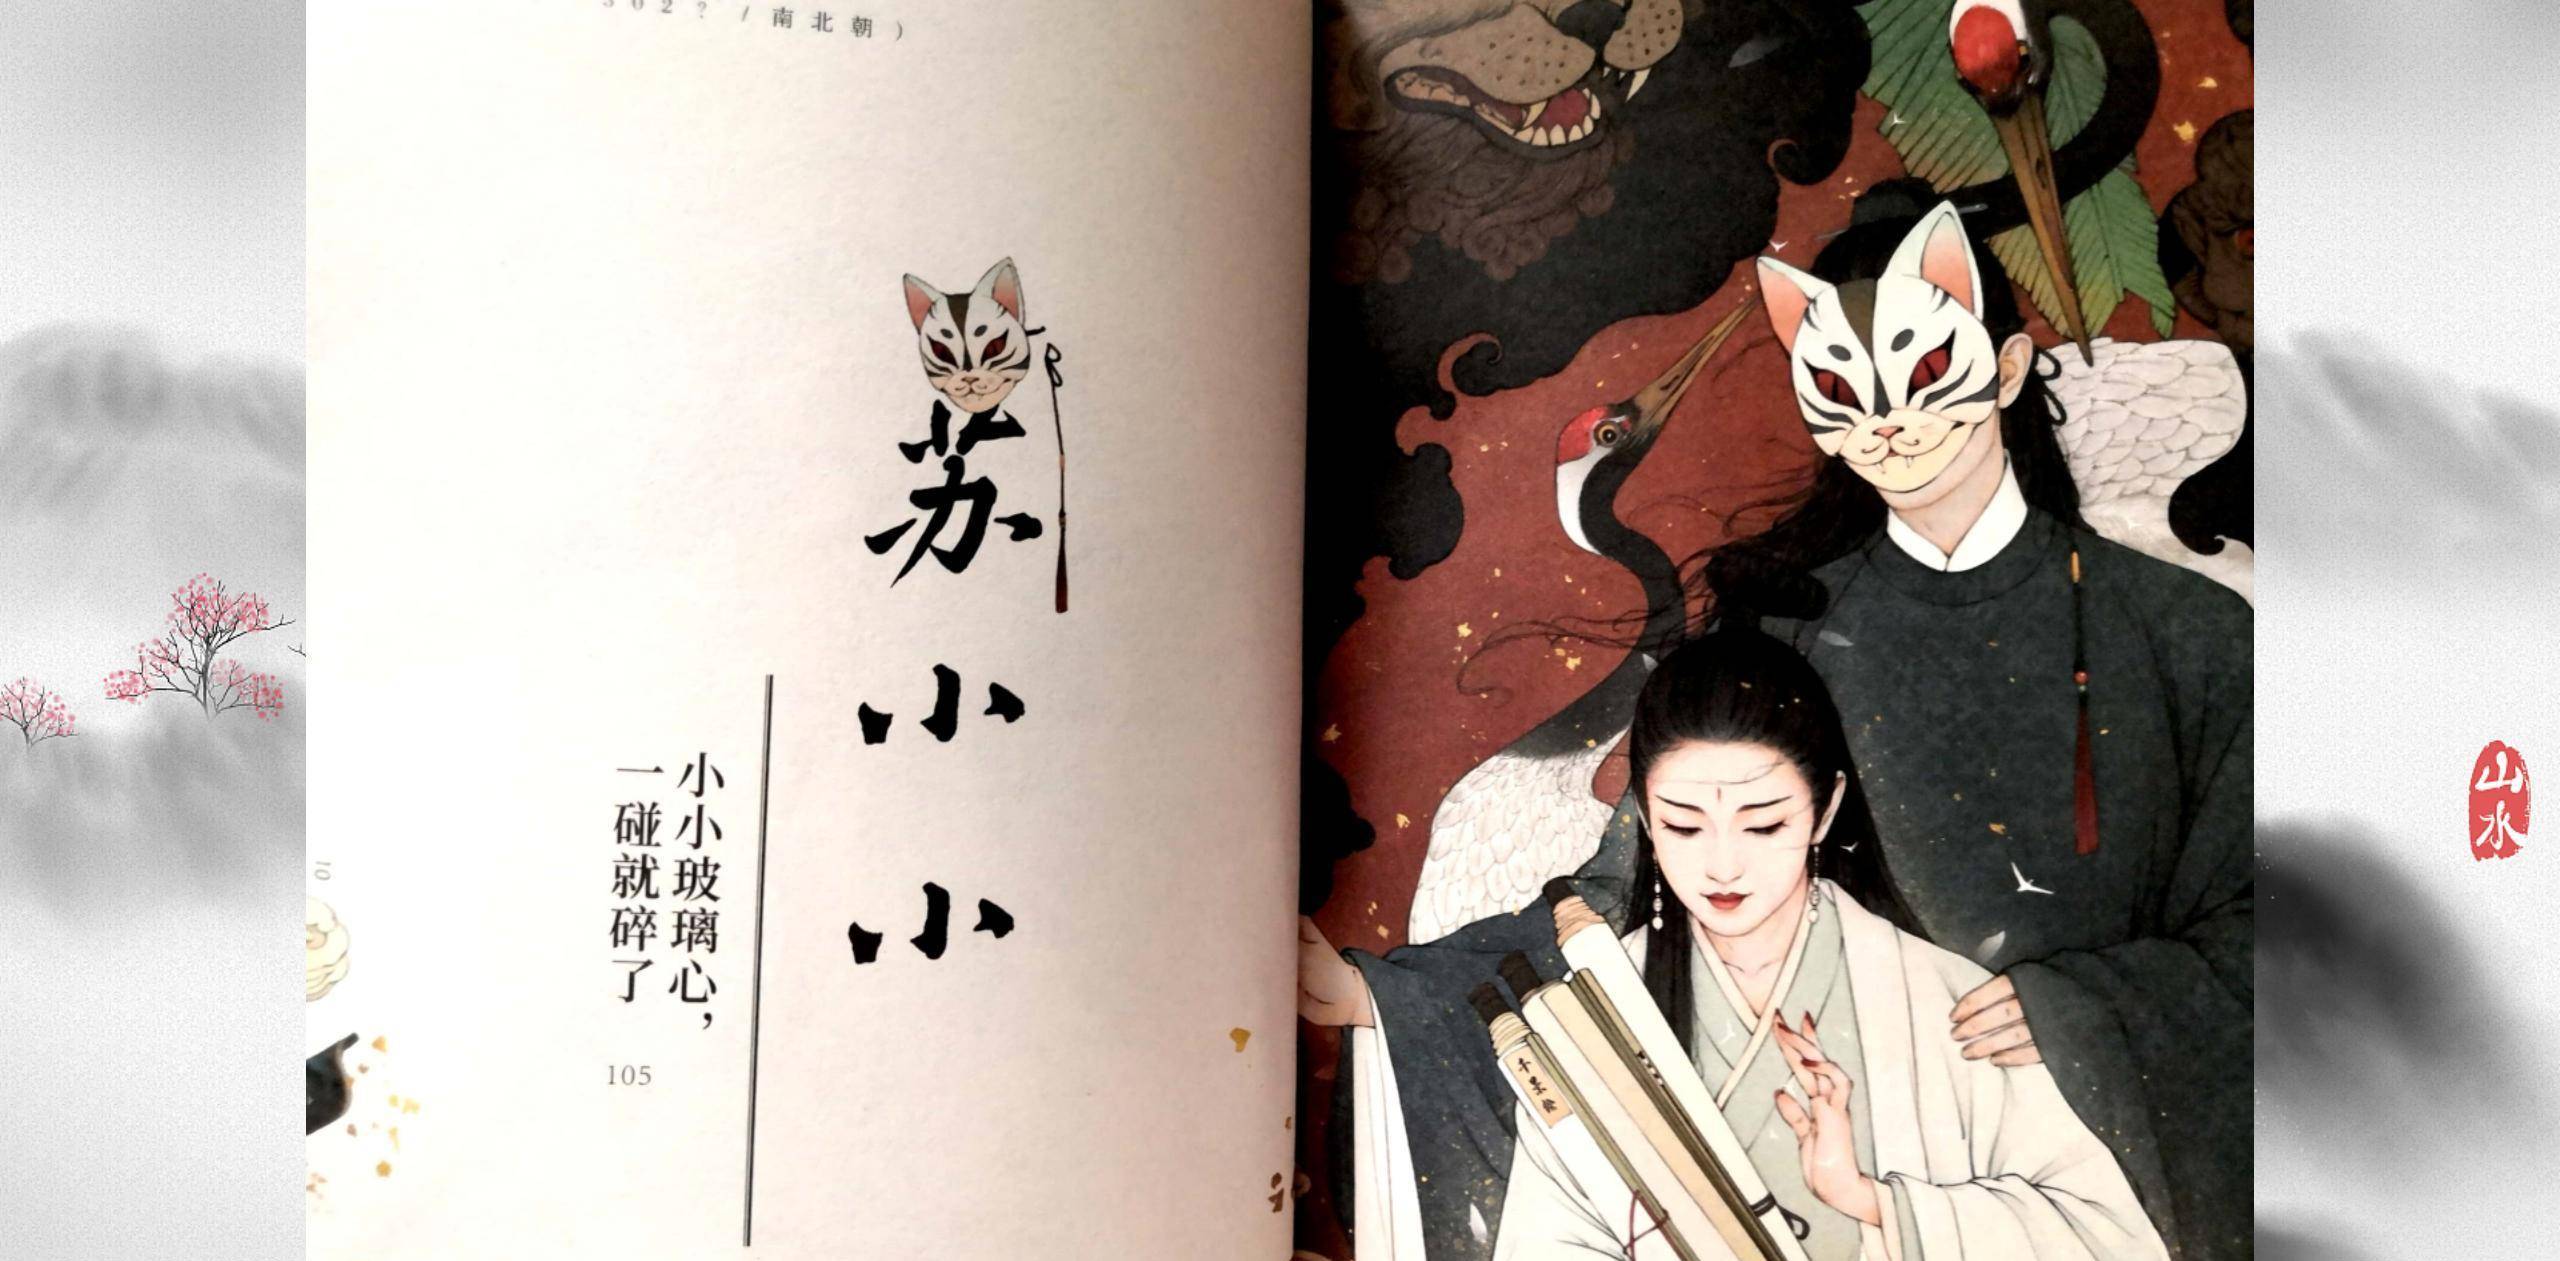 302？/南北朝）
苏小小
小小玻璃心，
一碰就碎了
105
10
山水